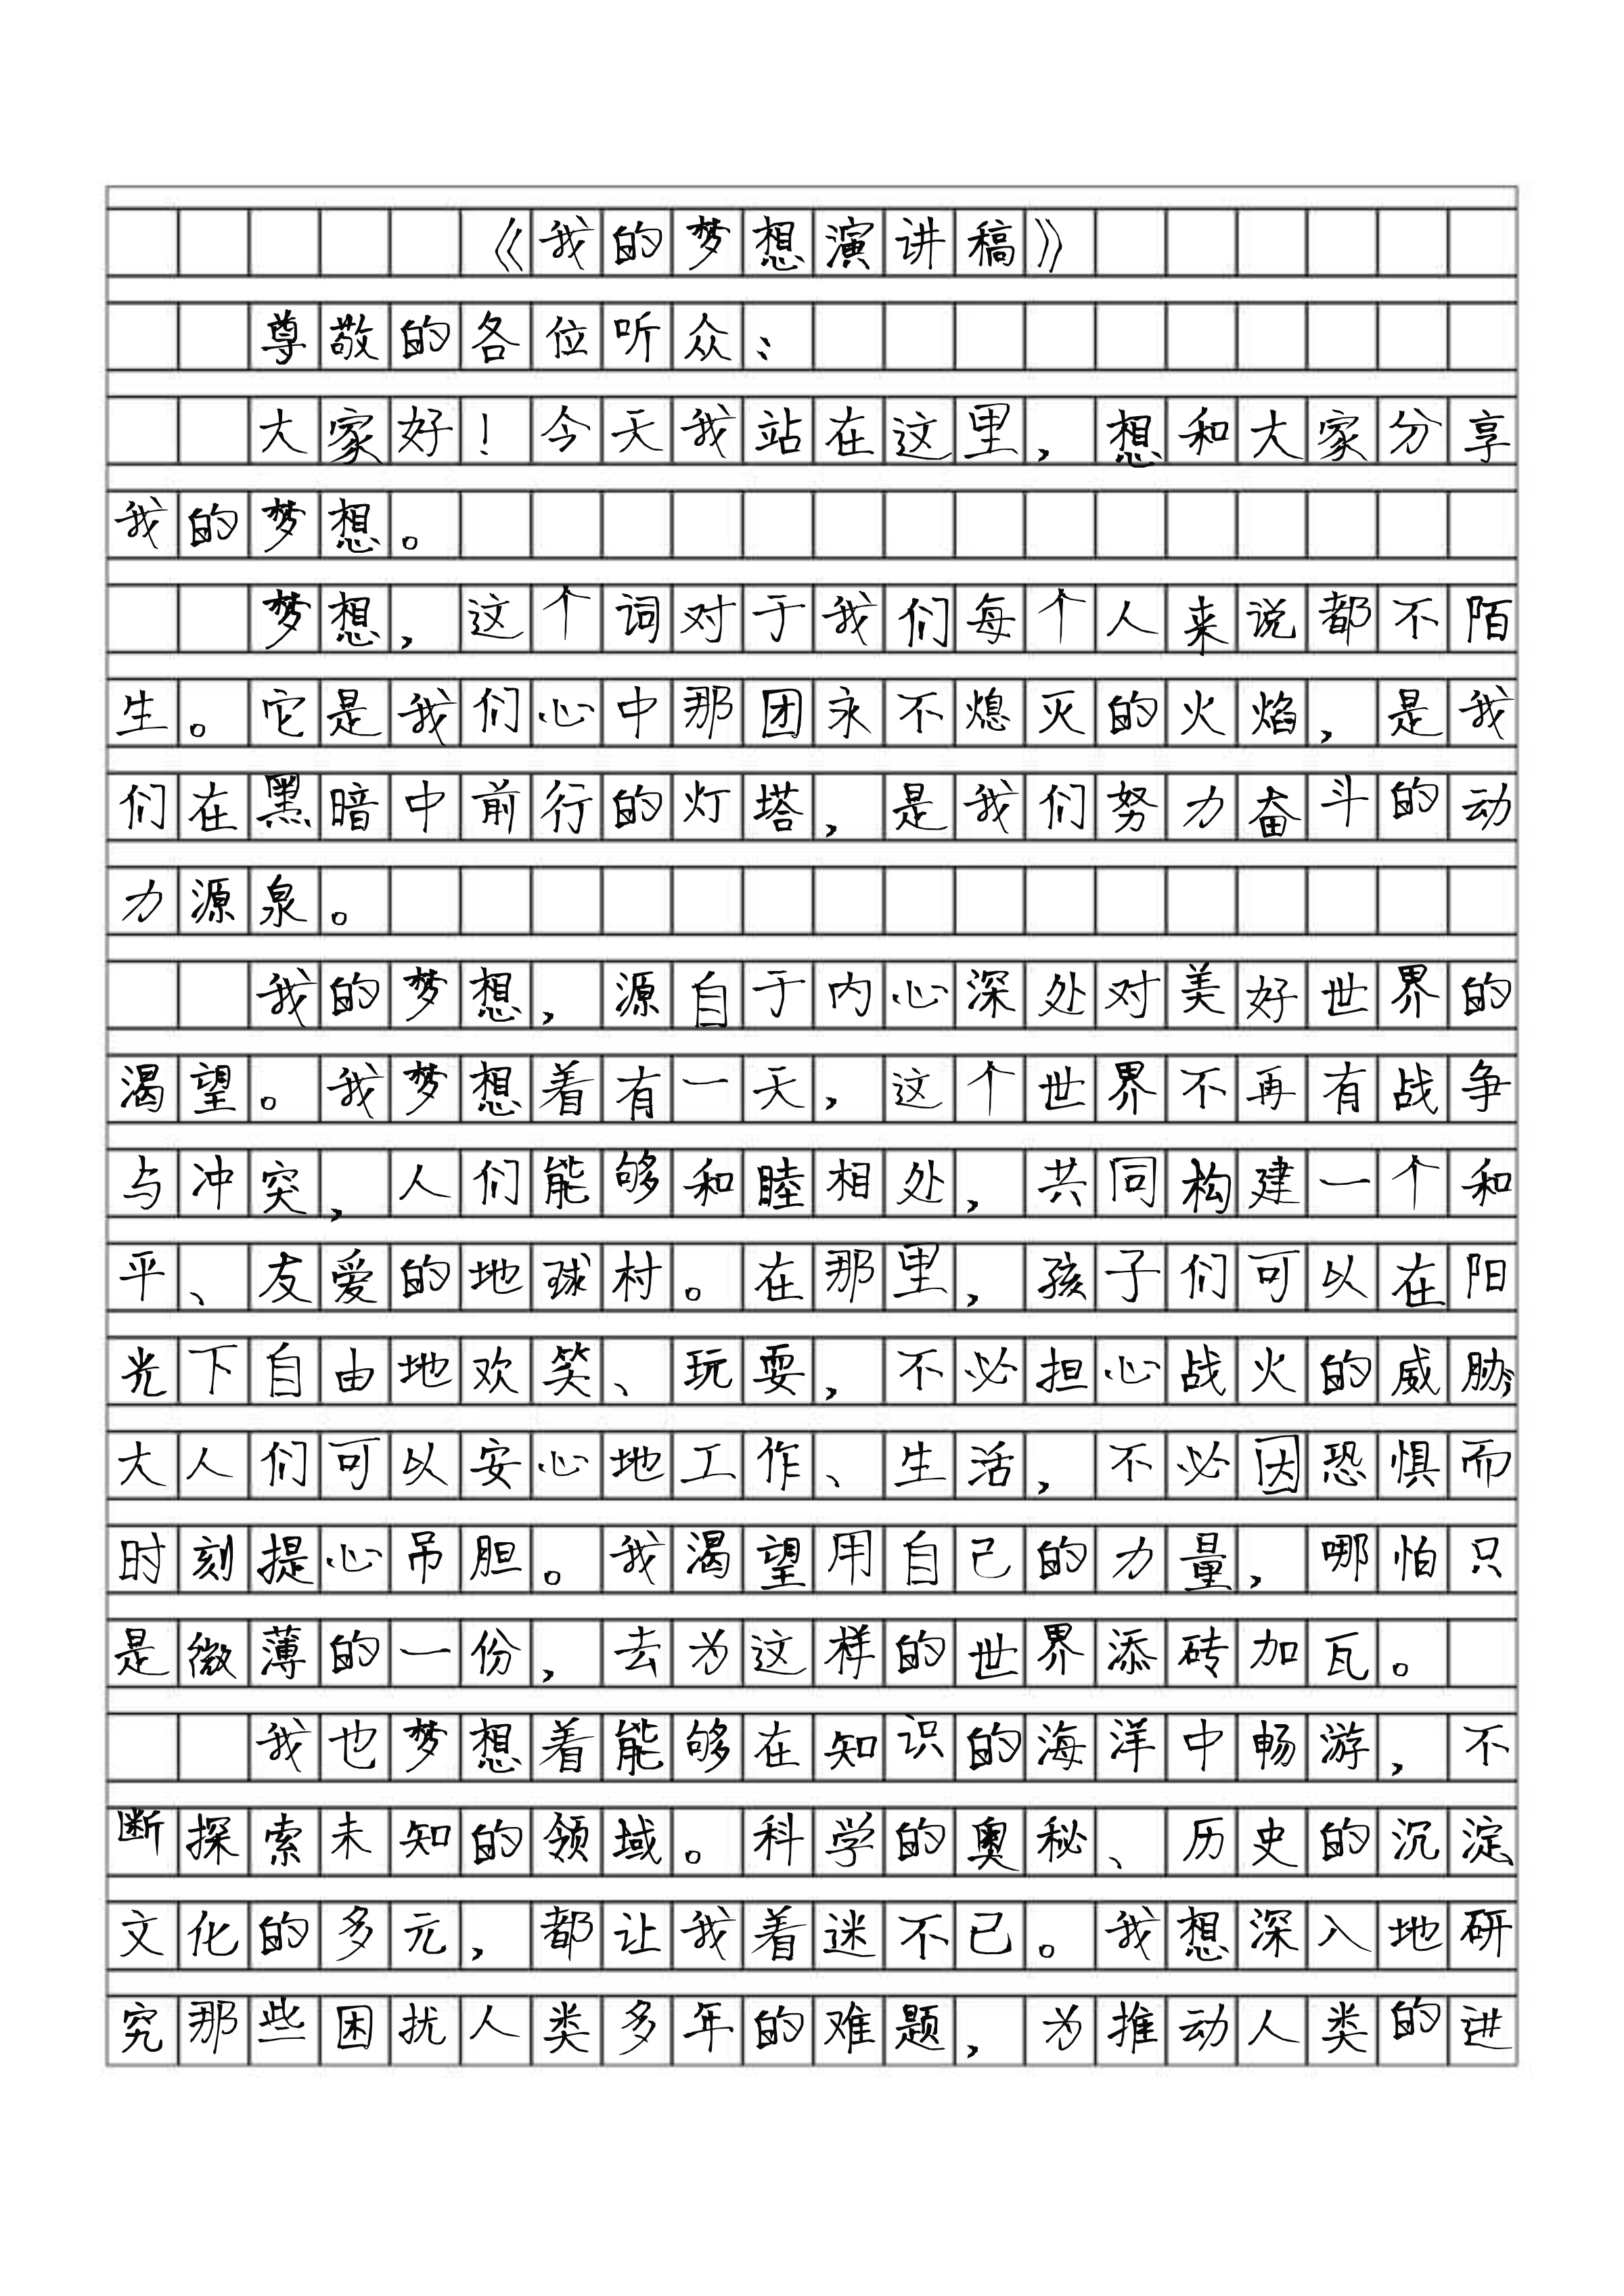 《我的梦想演讲稿》
尊敬的各位听众：
大家好！今天我站在这里，想和大家分享
我的梦想。
梦想，这个词对于我们每个人来说都不陌
生。它是我们心中那团永不熄灭的火焰，是我
们在黑暗中前行的灯塔，是我们努力奋斗的动
力源泉。
我的梦想，源自于内心深处对美好世界的
渴望。我梦想着有一天，这个世界不再有战争
与冲突，人们能够和睦相处，共同构建一个和
平、友爱的地球村。在那里，孩子们可以在阳
光下自由地欢笑、玩耍，不必担心战火的威胁；
大人们可以安心地工作、生活，不必因恐惧而
时刻提心吊胆。我渴望用自己的力量，哪怕只
是微薄的一份，去为这样的世界添砖加瓦。
我也梦想着能够在知识的海洋中畅游，不
断探索未知的领域。科学的奥秘、历史的沉淀、
文化的多元，都让我着迷不已。我想深入地研
究那些困扰人类多年的难题，为推动人类的进